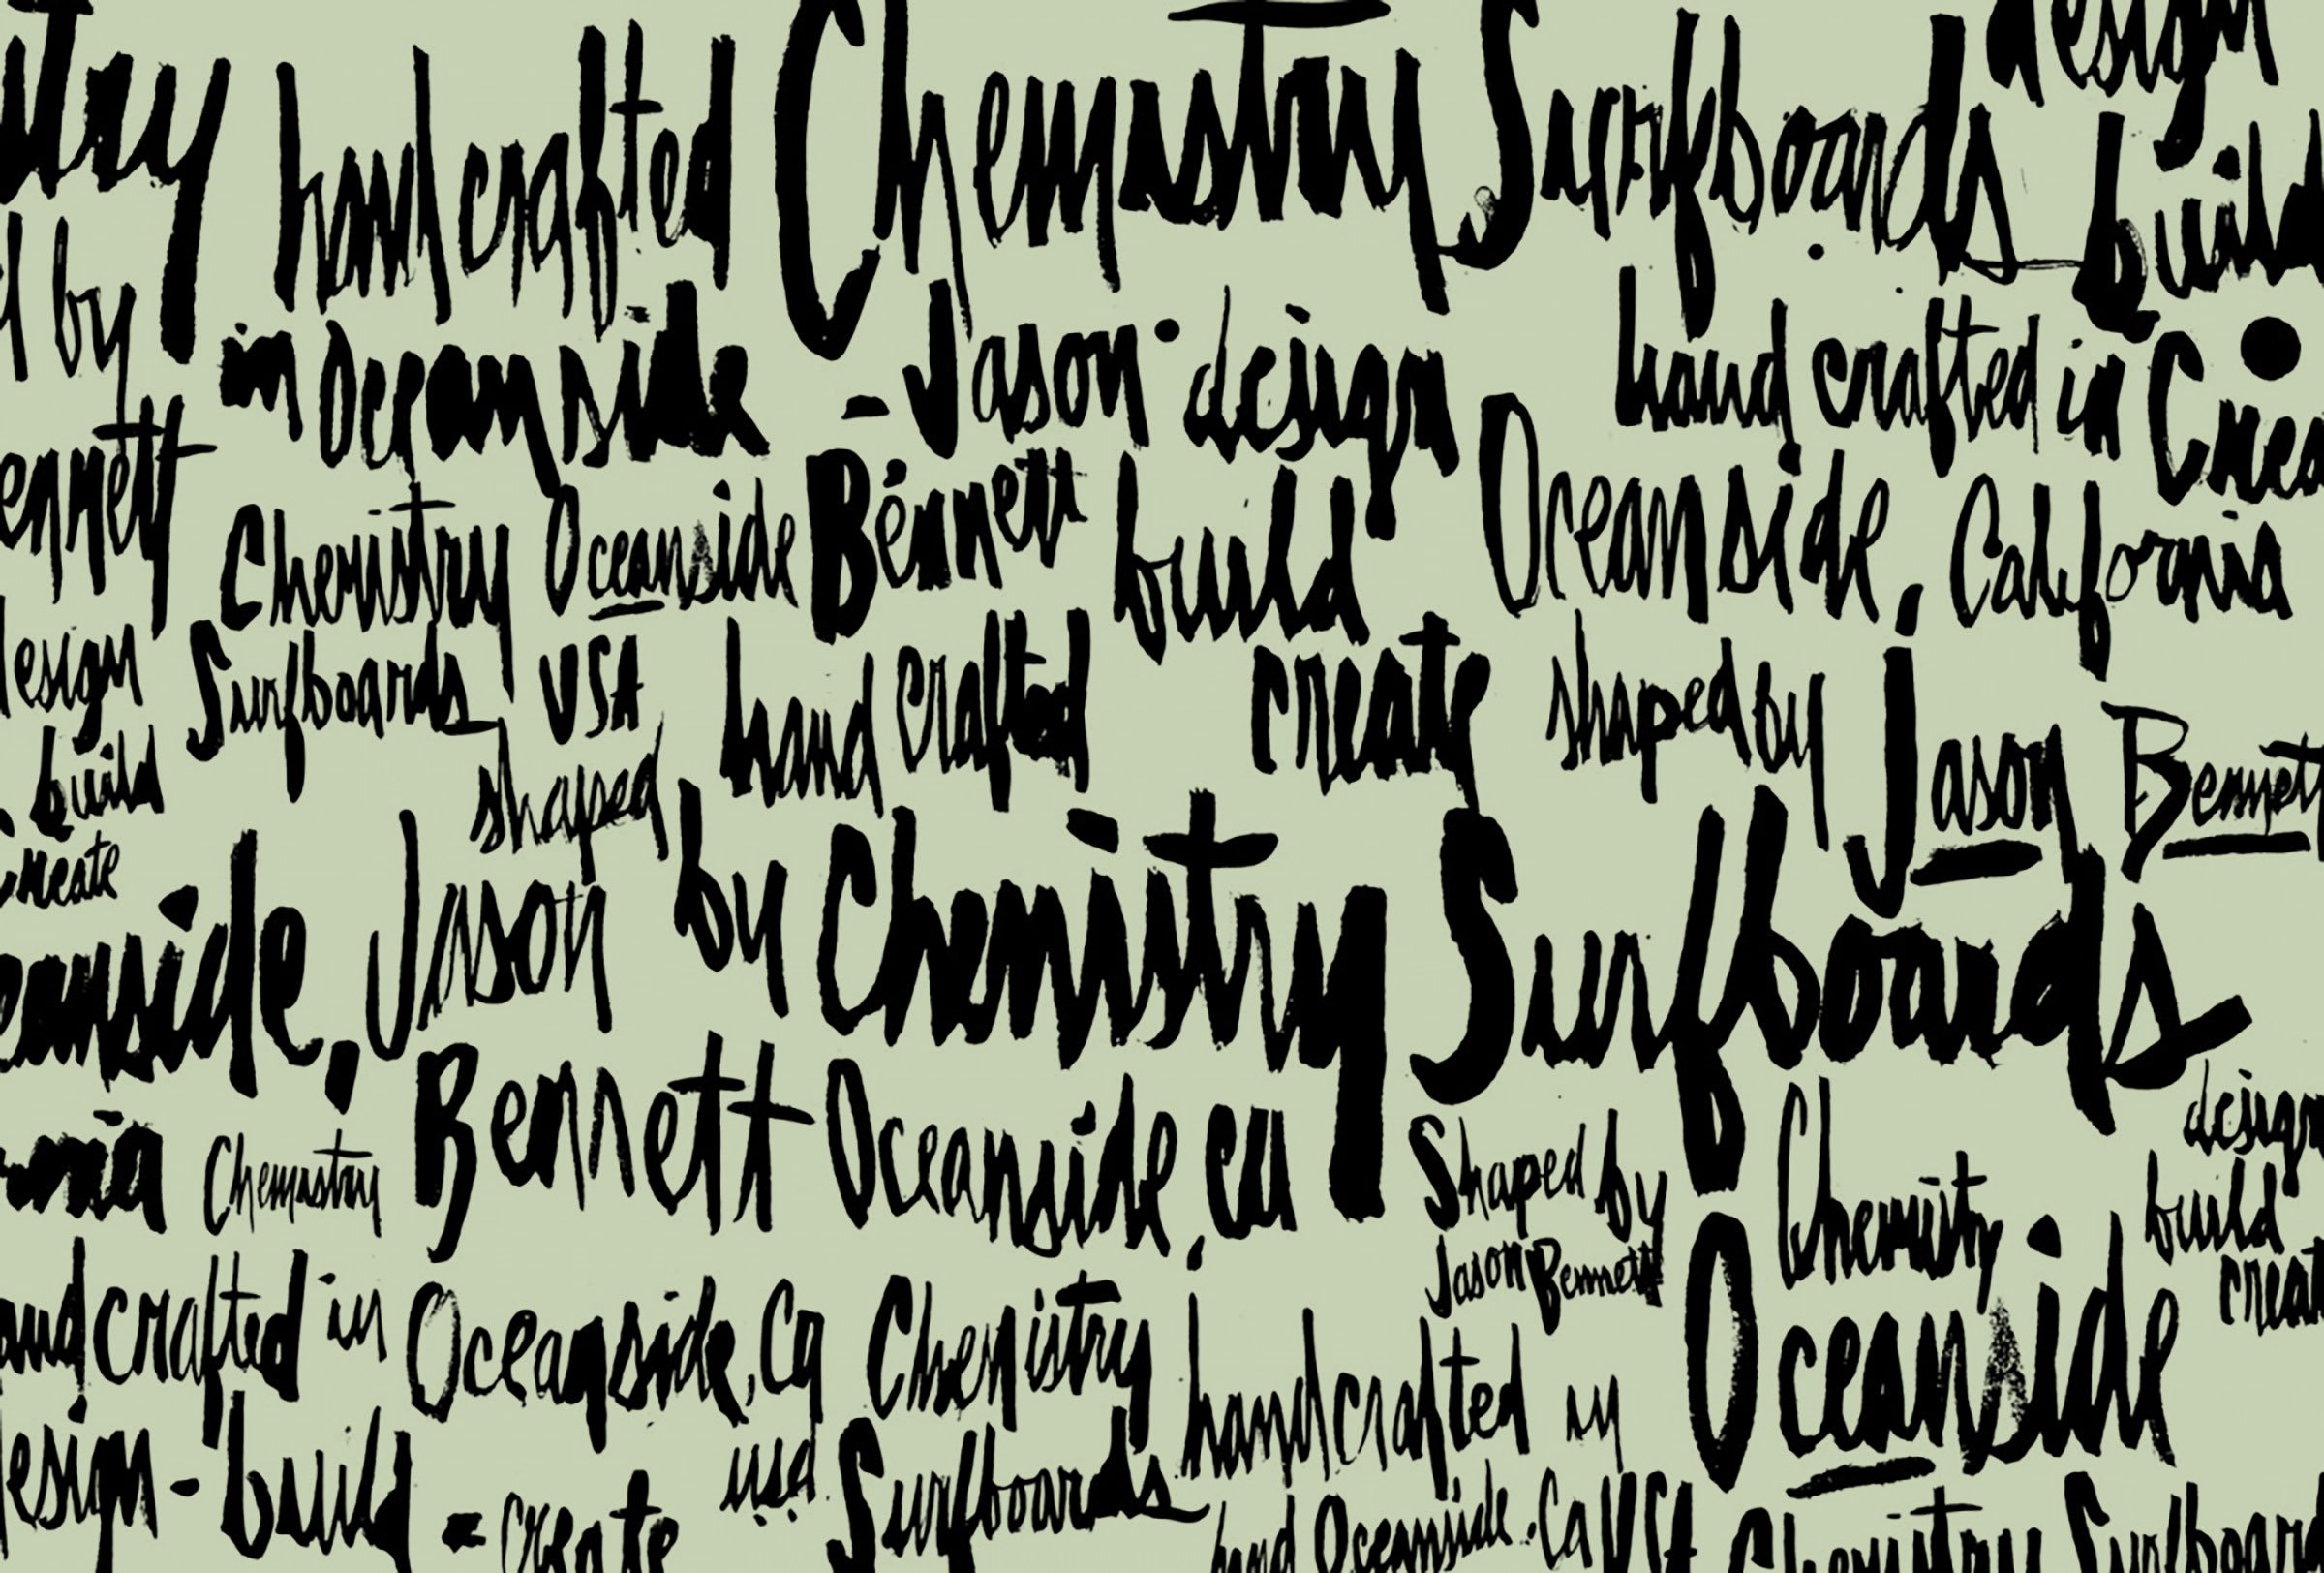 try handcrafted Chemistry Surfboards design build
by in Oceanside - Jason design hand crafted in
ennett Chemistry Oceanside Bennett build Oceanside, California
esign Surfboards USA hand crafted create shaped by Jason Bennett
build shaped
create
eanside, Jason by Chemistry Surfboards
nia Chemistry Bennett Oceanside, ca Shaped by Chemistry design
Jason Bennett build
and crafted in Oceanside, Ca Chemistry handcrafted in Oceanside creat
esign - build - create usa Surfboards hand Oceanside. Ca USA Chemistry Surfboard